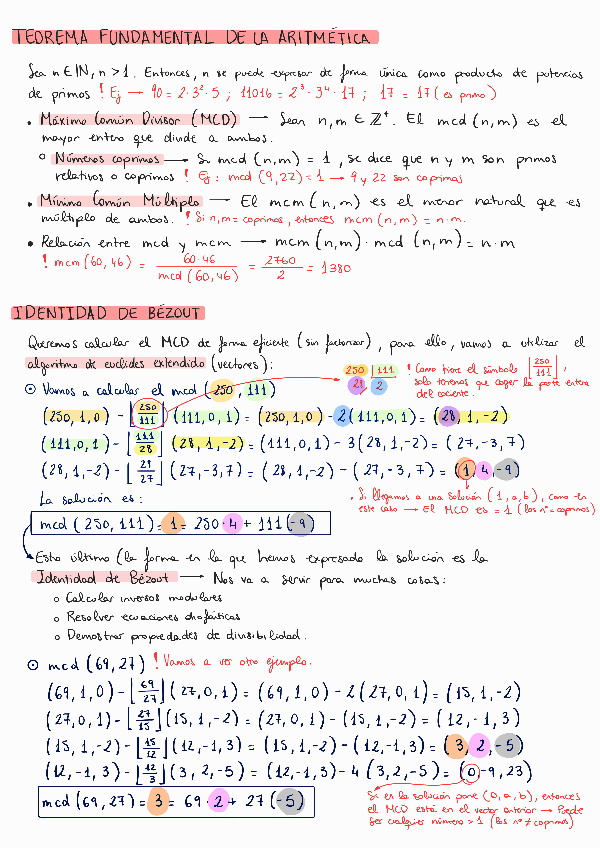 TEOREMA FUNDAMENTAL DE LA ARITMÉTICA
Sea n ∈ ℕ, n > 1. Entonces, n se puede expresar de forma única como producto de potencias
de primos ! Ej → 90 = 2·3²·5 ; 11016 = 2³·3⁴·17 ; 17 = 17 (es primo)
• Máximo Común Divisor (MCD) → Sean n, m ∈ ℤ⁺. El mcd (n,m) es el
mayor entero que divide a ambos.
○ Números coprimos → Si mcd (n,m) = 1, se dice que n y m son primos
relativos o coprimos ! Ej: mcd (9,22) = 1 → 9 y 22 son coprimos
• Mínimo Común Múltiplo → El mcm (n,m) es el menor natural que es
múltiplo de ambos. ! Si n,m = coprimos, entonces mcm (n,m) = n·m.
• Relación entre mcd y mcm → mcm (n,m) · mcd (n,m) = n·m
! mcm (60,46) = 60·46 / mcd (60,46) = 2760 / 2 = 1380
IDENTIDAD DE BÉZOUT
Queremos calcular el MCD de forma eficiente (sin factorizar), para ello, vamos a utilizar el
algoritmo de euclides extendido (vectores):
250 | 111
28 2
! Como tiene el símbolo ⌊250/111⌋,
solo tenemos que coger la parte entera
del cociente.
⊙ Vamos a calcular el mcd (250, 111)
(250,1,0) - ⌊250/111⌋ (111,0,1) = (250,1,0) - 2 (111,0,1) = (28,1,-2)
(111,0,1) - ⌊111/28⌋ (28,1,-2) = (111,0,1) - 3 (28,1,-2) = (27,-3,7)
(28,1,-2) - ⌊28/27⌋ (27,-3,7) = (28,1,-2) - (27,-3,7) = (1,4,-9)
La solución es:
• Si llegamos a una solución (1,a,b), como en
este caso → El MCD es = 1 (los nº = coprimos)
mcd (250,111) = 1 = 250·4 + 111(-9)
Esto último (la forma en la que hemos expresado la solución es la
Identidad de Bézout → Nos va a servir para muchas cosas:
○ Calcular inversos modulares
○ Resolver ecuaciones diofánticas
○ Demostrar propiedades de divisibilidad.
⊙ mcd (69,27) ! Vamos a ver otro ejemplo.
(69,1,0) - ⌊69/27⌋ (27,0,1) = (69,1,0) - 2 (27,0,1) = (15,1,-2)
(27,0,1) - ⌊27/15⌋ (15,1,-2) = (27,0,1) - (15,1,-2) = (12,-1,3)
(15,1,-2) - ⌊15/12⌋ (12,-1,3) = (15,1,-2) - (12,-1,3) = (3,2,-5)
(12,-1,3) - ⌊12/3⌋ (3,2,-5) = (12,-1,3) - 4 (3,2,-5) = (0,-9,23)
mcd (69,27) = 3 = 69·2 + 27 (-5)
Si en la solución pone (0,a,b), entonces
el MCD está en el vector anterior → Puede
ser cualquier número > 1 (los nº ≠ coprimos)